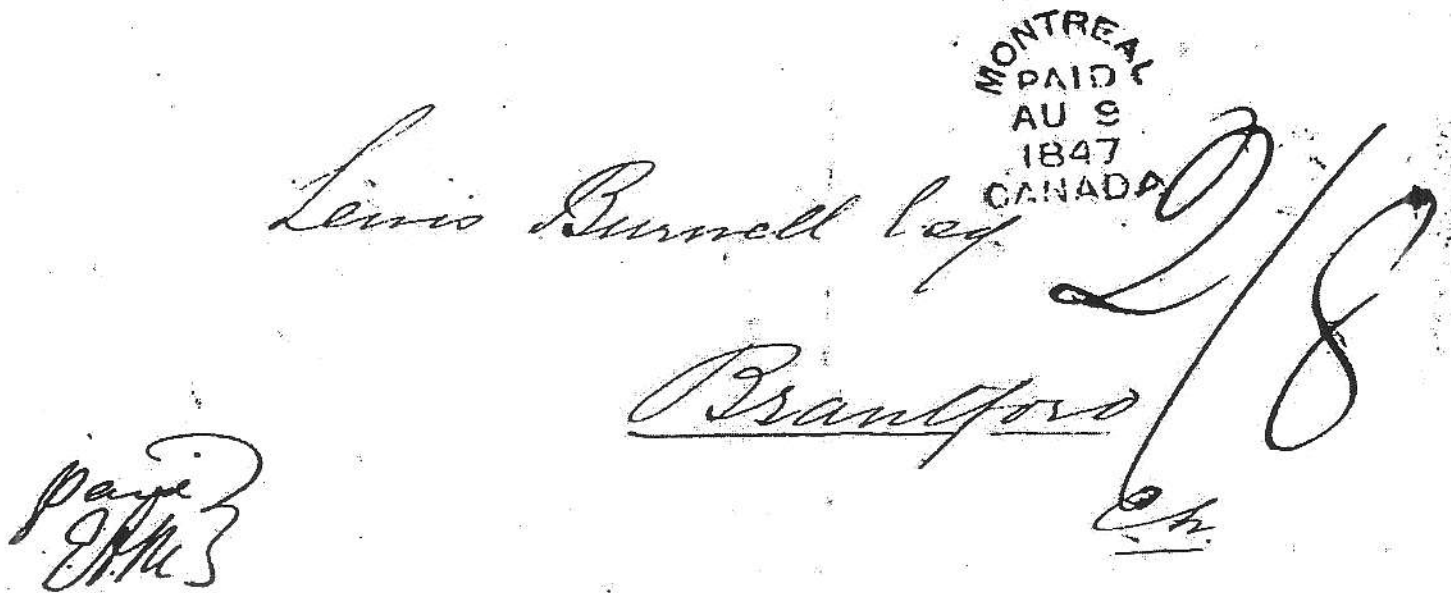 MONTREAL
PAID
AU 9
1847
CANADA
Lewis Burwell Esq
2/8
Brantford
paid